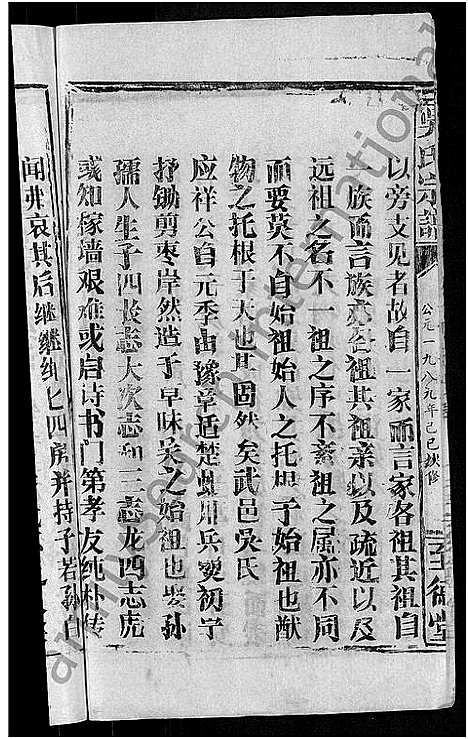 吴氏宗谱
公元一九八九年己巳续修
至德堂
以旁支见者故自一家而言家各祖其祖自
一族而言族亦各祖其祖亲以及疏近以及
远祖之名不一祖之序不紊祖之属亦不同
而要莫不自始祖始人之托根于始祖也猷
物之托根于天也其固然矣武邑吳氏
应祥公自元季由豫章适楚 川兵燹初宁
抒锄剪枣岸然造于早昧吴之始祖也娶孙
孺人生子四长志大次志和三志龙四志虎
或知稼墙艰难或启诗书门第孝友纯朴传
闻弗哀其后继继绳 七四房并持子若孙自